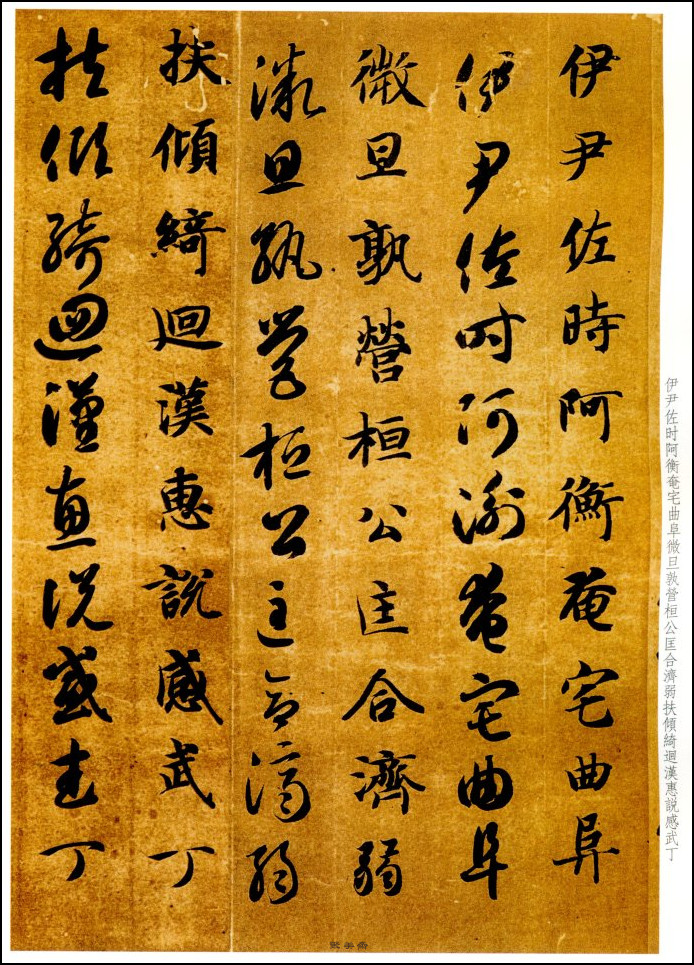 伊尹佐時阿衡奄宅曲阜
伊尹佐時阿衡奄宅曲阜
微旦孰營桓公匡合濟弱
微旦孰營桓公匡合濟弱
扶傾綺迴漢惠說感武丁
扶傾綺迴漢惠說感武丁
伊尹佐时阿衡奄宅曲阜微旦孰營桓公匡合濟弱扶傾綺迴漢惠説感武丁